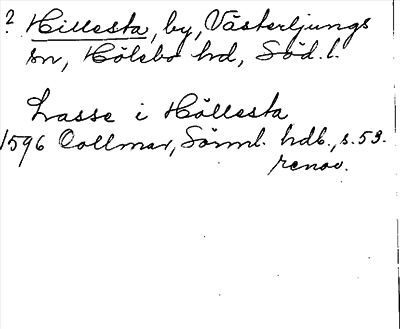 ? Hillesta, by, Västerljungs
sn, Hölebo hd, Söd. l.
Lasse i Höllesta
1596 Collmar, Sörml. hdb., s. 53.
renov.